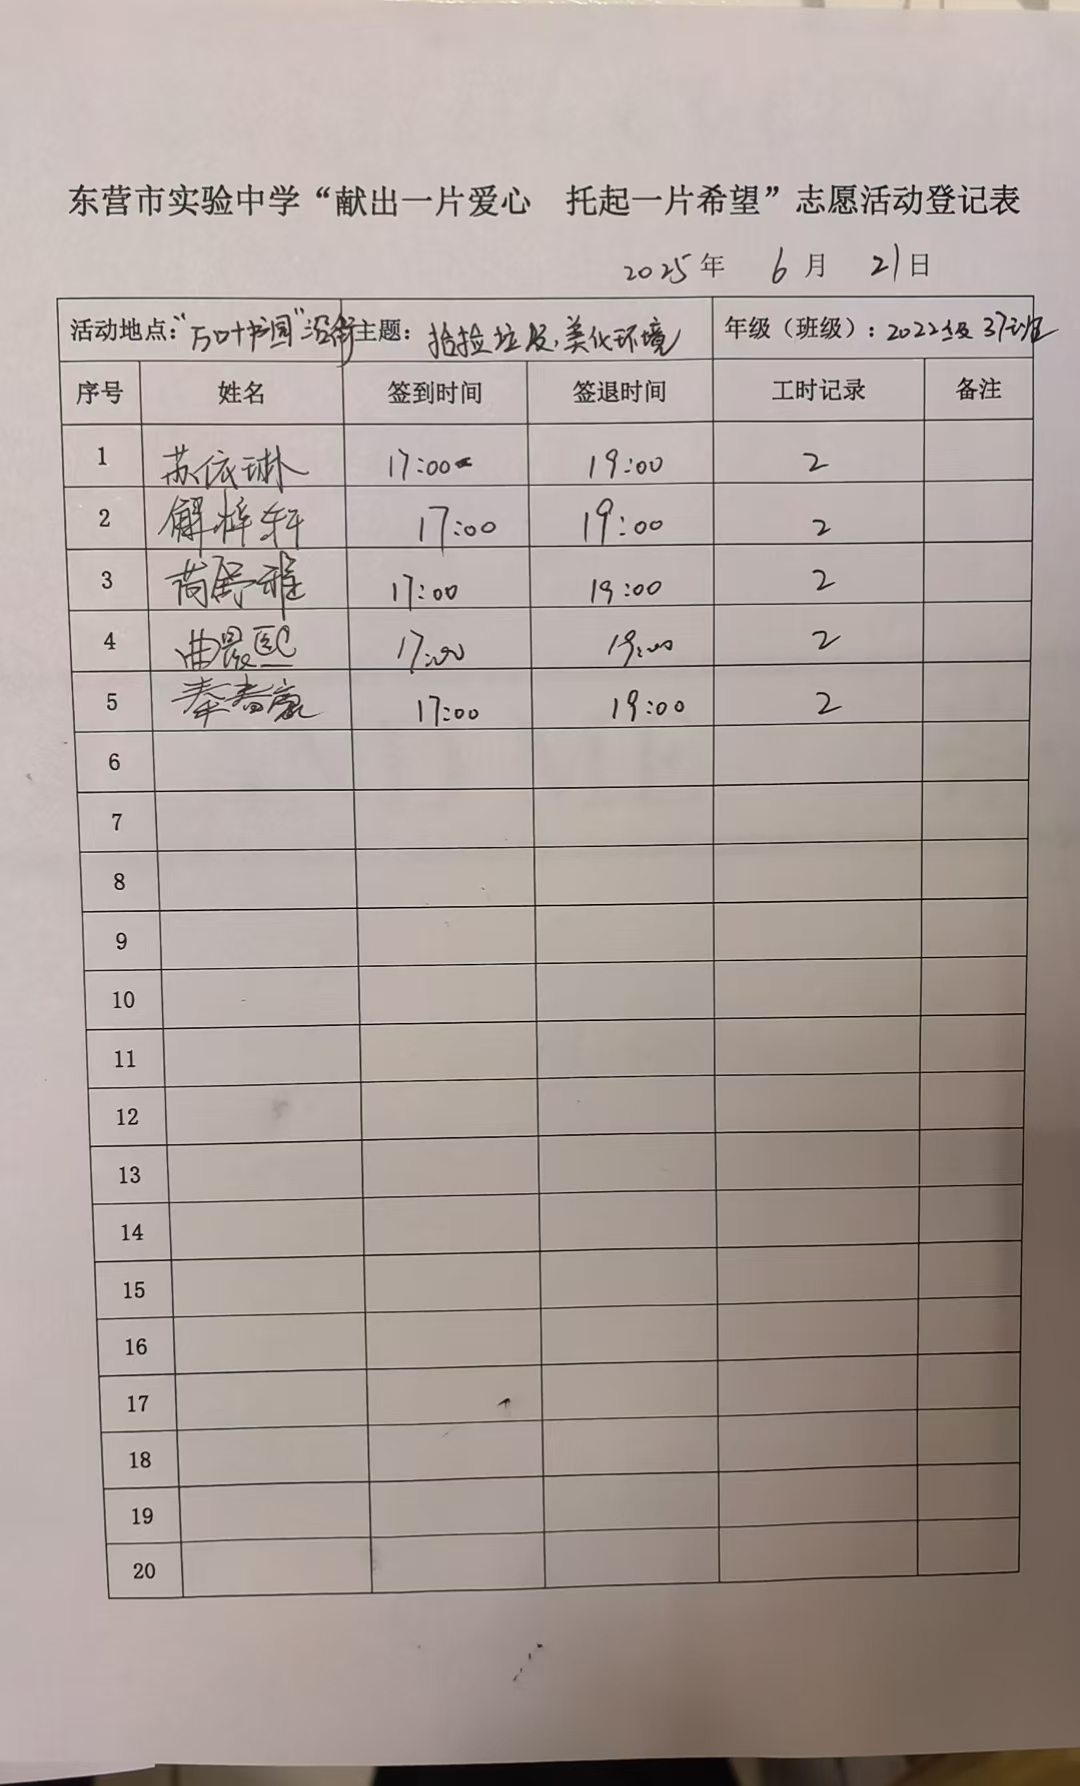 东营市实验中学“献出一片爱心 托起一片希望”志愿活动登记表
2025年 6月 21日
活动地点:“万叶书园”沿街 主题: 拾捡垃圾,美化环境 年级（班级）: 2022级37班
序号 姓名 签到时间 签退时间 工时记录 备注
1 苏依琳 17:00 19:00 2
2 解梓轩 17:00 19:00 2
3 荷舒雅 17:00 19:00 2
4 曲晨熙 17:00 19:00 2
5 17:00 19:00 2
6
7
8
9
10
11
12
13
14
15
16
17
18
19
20